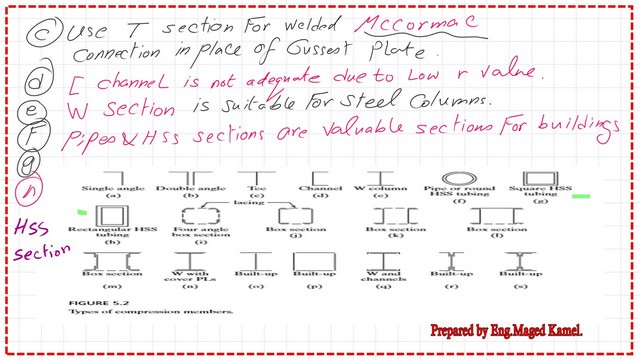 (c) Use T section For welded McCormac
Connection in place of Gusset Plate.
(d) [ channel is not adequate due to Low r value.
(e) W section is suitable For Steel Columns.
(f) Pipes & Hss sections are valuable sections For buildings
(g)
(h)
HSS
section
Single angle Double angle Tee Channel W column Pipe or round Square HSS
HSS tubing tubing
(a) (b) (c) (d) (e) (f) (g)
lacing
Rectangular HSS Four angle Box section Box section Box section
tubing box section
(h) (i) (j) (k) (l)
Box section W with Built-up Built-up W and Built-up Built-up
cover PLs channels
(m) (n) (o) (p) (q) (r) (s)
FIGURE 5.2
Types of compression members.
Prepared by Eng.Maged Kamel.